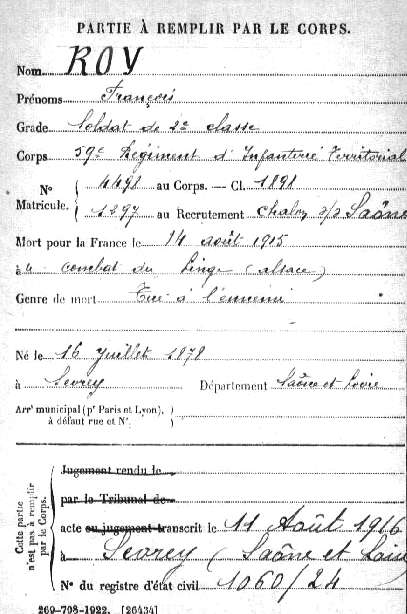 PARTIE À REMPLIR PAR LE CORPS.
Nom ROY
Prénoms François
Grade Soldat de 2e classe
Corps 59e Régiment d'Infanterie Territorial
N° 4498 au Corps. — Cl. 1898
Matricule. 1297 au Recrutement Chalon s/s Saône
Mort pour la France le 14 août 1915
à combat du Linge (alsace)
Genre de mort Tué à l'ennemi
Né le 16 Juillet 1878
à Sevrey Département Saône et Loire
Arrt municipal (pr Paris et Lyon),
à défaut rue et N°.
Cette partie n'est pas à remplir par le Corps.
Jugement rendu le
par le Tribunal de
acte ou jugement transcrit le 11 Août 1916
à Sevrey (Saône et Loire
N° du registre d'état civil 1060/24
269-708-1922. [26434]